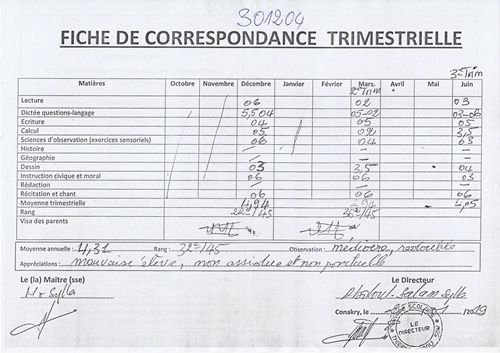 301204
FICHE DE CORRESPONDANCE TRIMESTRIELLE
3e Trim
Matières Octobre Novembre Décembre Janvier Février Mars Avril Mai Juin
2e Trim
Lecture 06 02 03
Dictée questions-langage 5,5 04 05-02 03-06
Ecriture 04 05 05
Calcul 05 02 3,5
Sciences d'observation (exercices sensoriels) 06 04 03
Histoire — — —
Géographie — — —
Dessin 03 3,5 04
Instruction civique et moral 06 06 03
Rédaction — — —
Récitation et chant 06 06 06
Moyenne trimestrielle 4,94 3,94 4,05
Rang /45 /45
Visa des parents
Moyenne annuelle : 4,31 Rang : 32e/45 Observation : médiocre, redouble
Appréciations : mauvaise élève, non assidue et non ponctuelle
Le (la) Maitre (sse) Le Directeur
Mr Sylla Abdoul Salam Sylla
Conakry, le /2019
LE DIRECTEUR